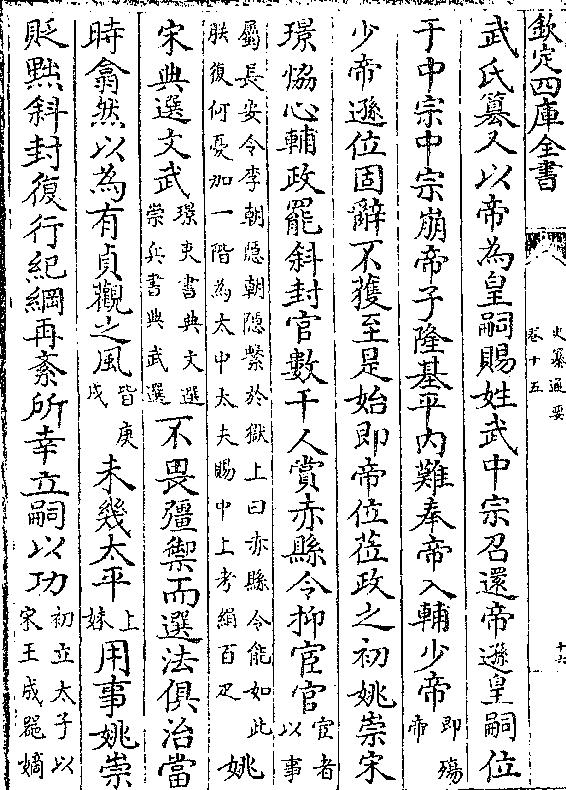 欽定四庫全書
史纂通要
卷十五
十六
武氏篡又以帝為皇嗣賜姓武中宗召還帝遜皇嗣位
于中宗中宗崩帝子隆基平內難奉帝入輔少帝即殤帝
少帝遜位固辭不獲至是始即帝位莅政之初姚崇宋
璟恊心輔政罷斜封官數千人賞赤縣令抑宦官宦者以事
屬長安令李朝隱朝隱繫於獄上曰赤縣令能如此朕復何憂加一階為太中大夫賜中上考絹百疋姚
宋典選文武璟吏書典文選崇兵書典武選不畏彊禦而選法俱治當
時翕然以為有貞觀之風皆庚戌未幾太平上妹用事姚崇
貶黜斜封復行紀綱再紊所幸立嗣以功初立太子以宋王成器嫡